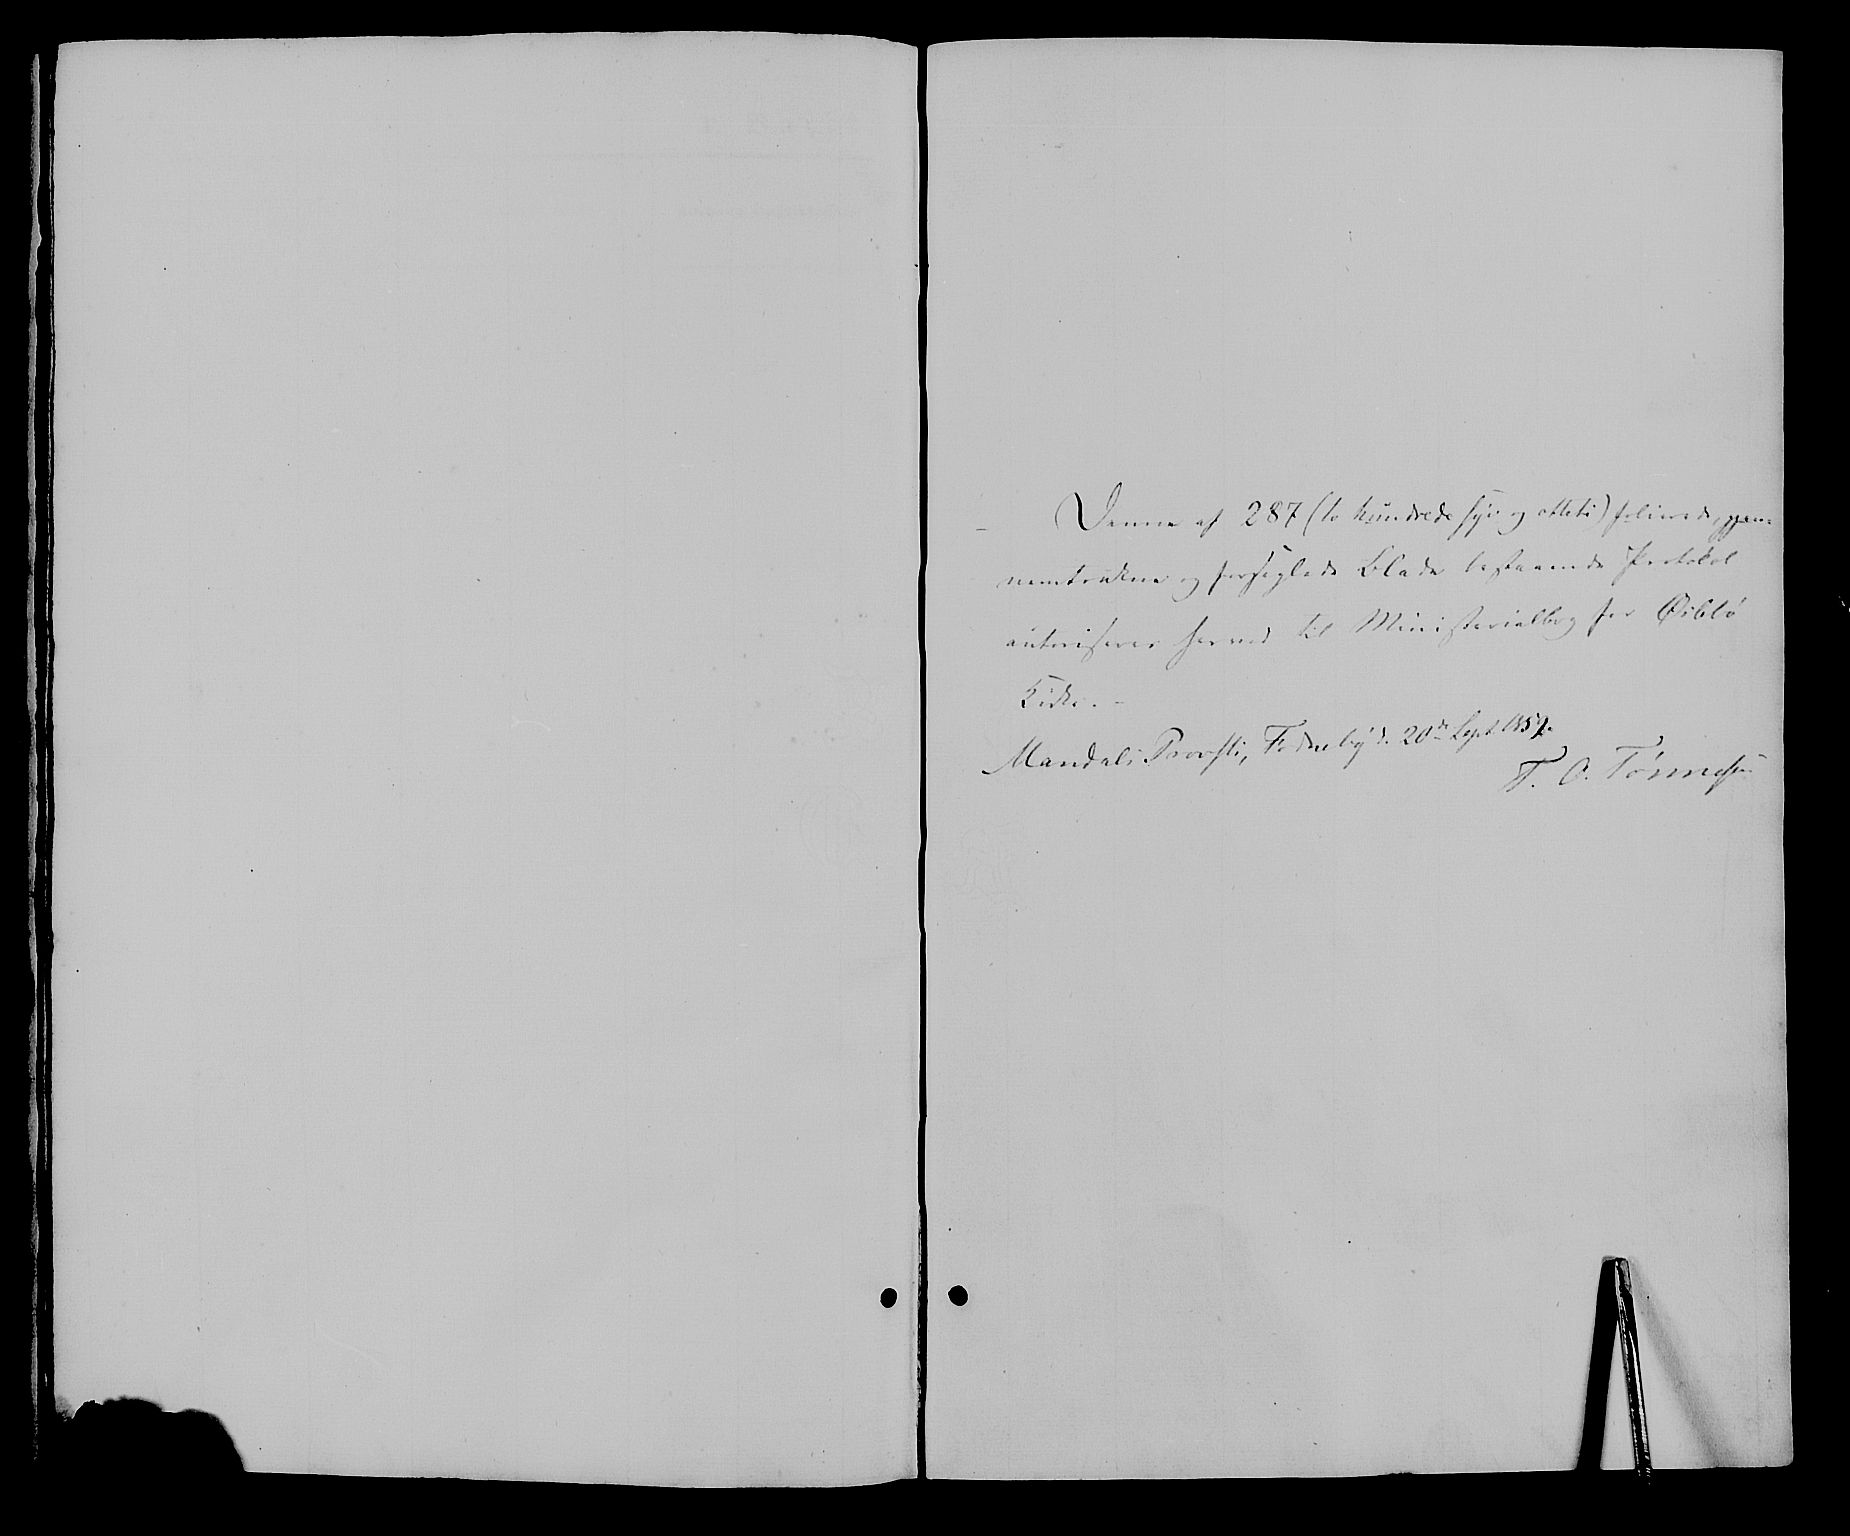 Denne af 287 (to hundrede syv og otteti) folierede, gjen-
nemtrukne og forseglede Blade bestaaende Protokol
autoriseres herved til Ministerialbog for Øibslø
Kirke. -
Mandals Provsti, d. 20de Sept 1859.
T. O. Tønnessen